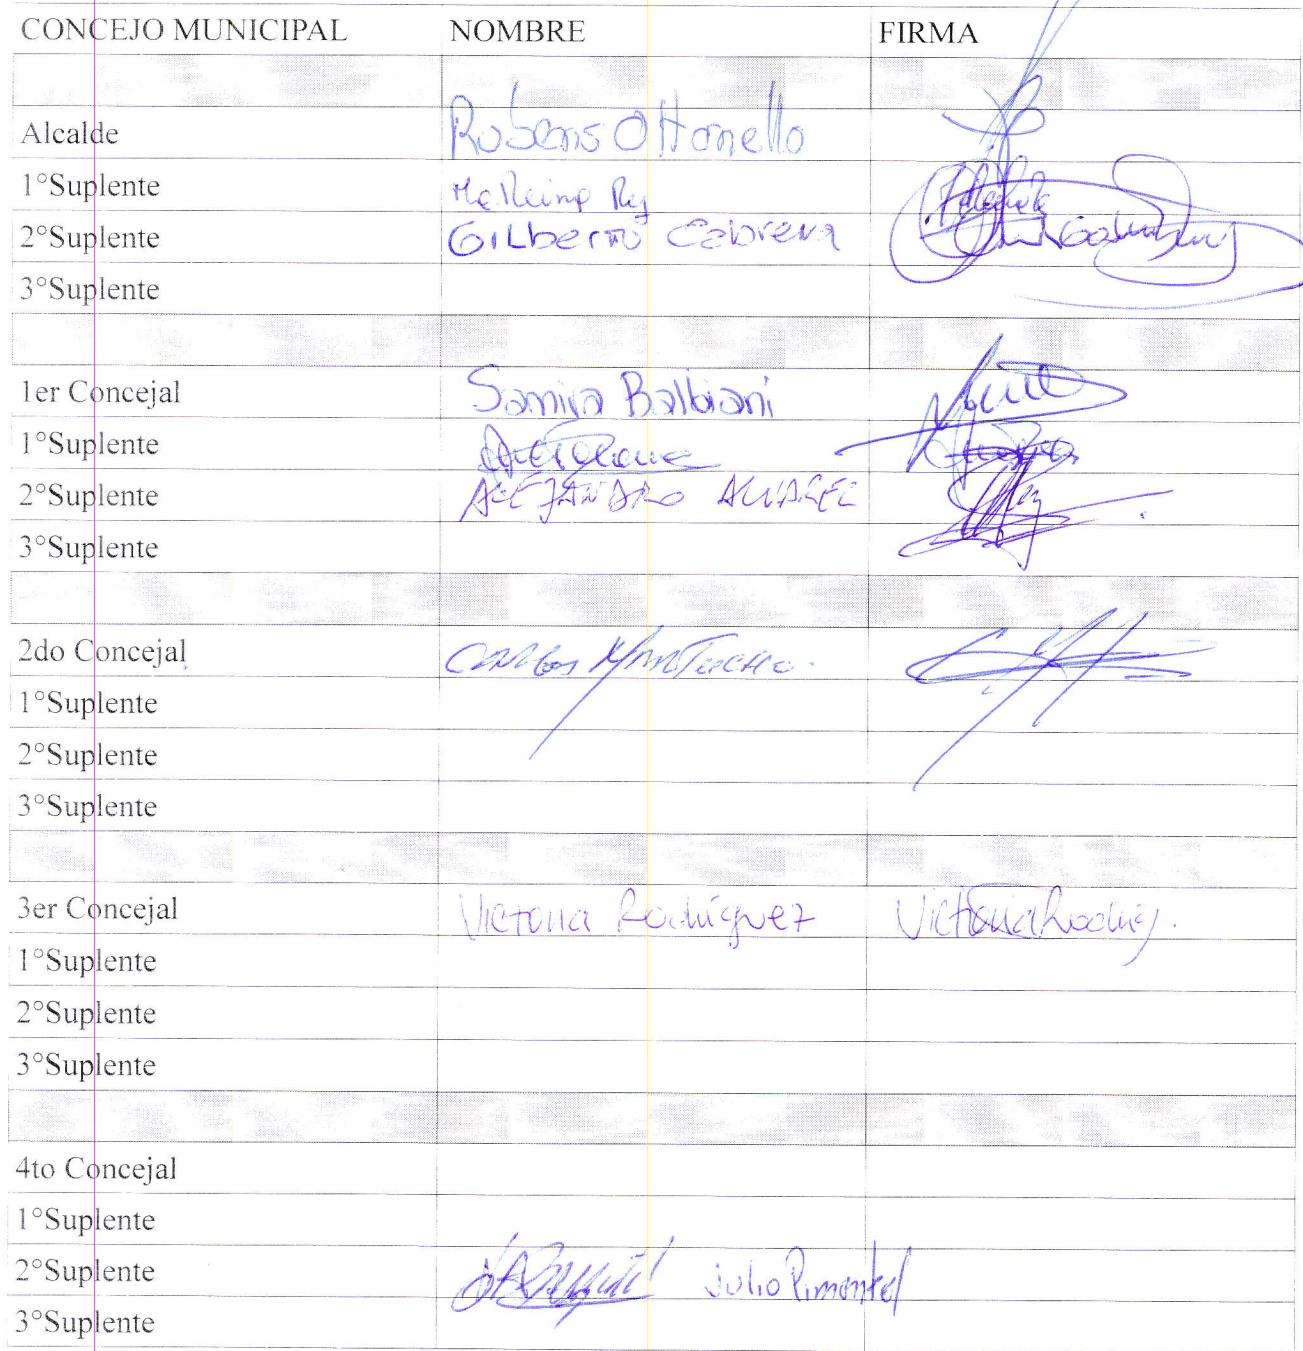 CONCEJO MUNICIPAL NOMBRE FIRMA
Alcalde Rubens Ottonello
1°Suplente
2°Suplente GILberto Cabrera
3°Suplente
1er Concejal Samira Balbiani
1°Suplente
2°Suplente ALEJANDRO ALVAREZ
3°Suplente
2do Concejal CARLOS
1°Suplente
2°Suplente
3°Suplente
3er Concejal Victoria Rodríguez Victoria Rodríg.
1°Suplente
2°Suplente
3°Suplente
4to Concejal
1°Suplente
2°Suplente Julio Pimentel
3°Suplente